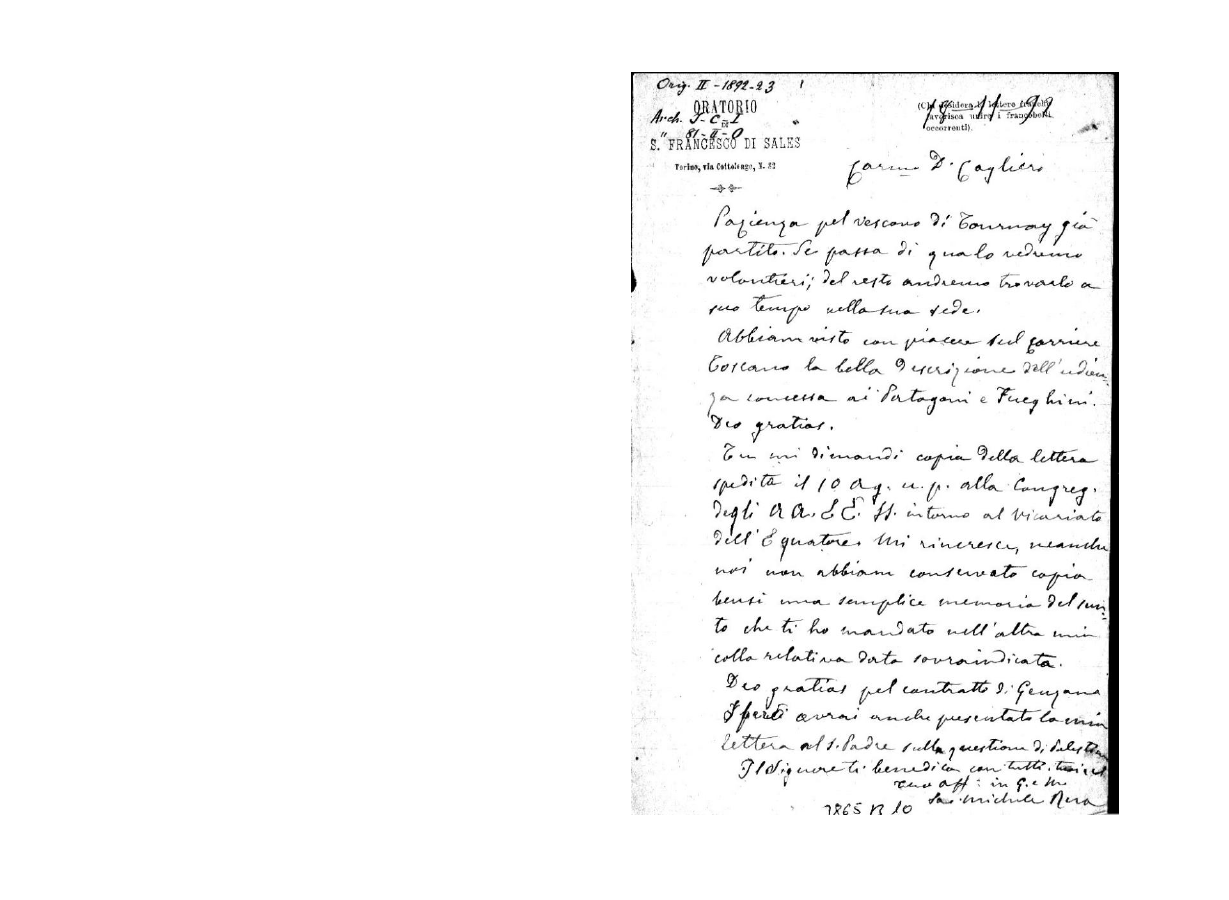 Orig. II - 1892-23
ORATORIO
Arch. I-C-I
DI
81-II-0
S. FRANCESCO DI SALES
Torino, via Cottolengo, N. 32
(Chi desidera le lettere
favorisca unire i francobolli
occorrenti).
18 11 92
Carmo D. Cagliero
Pazienza pel vescovo di Tournay già
partito. Se passa di qua lo vedremo
volontieri; del resto andremo trovarlo a
suo tempo nella sua sede.
Abbiam visto con piacere sul Corriere
Toscano la bella descrizione dell'udien-
za concessa ai Patagoni e Fueghini.
Deo gratias.
Tu mi dimandi copia della lettera
spedita il 10 Ag. u. p. alla Congreg.
degli AA. EE. SS. intorno al Vicariato
dell'Equatore. Mi rincresce, neanche
noi non abbiam conservato copia
bensi una semplice memoria del sun-
to che ti ho mandato nell'altra mia
colla relativa data sovraindicata.
Deo gratias pel contratto di Genzano
Spero avrai anche presentato la mia
lettera al S. Padre sulla questione di Palestina
Il Signore ti benedica con tutti
tuo aff. in G. e M.
Sac. Michele Rua
2865 B 10